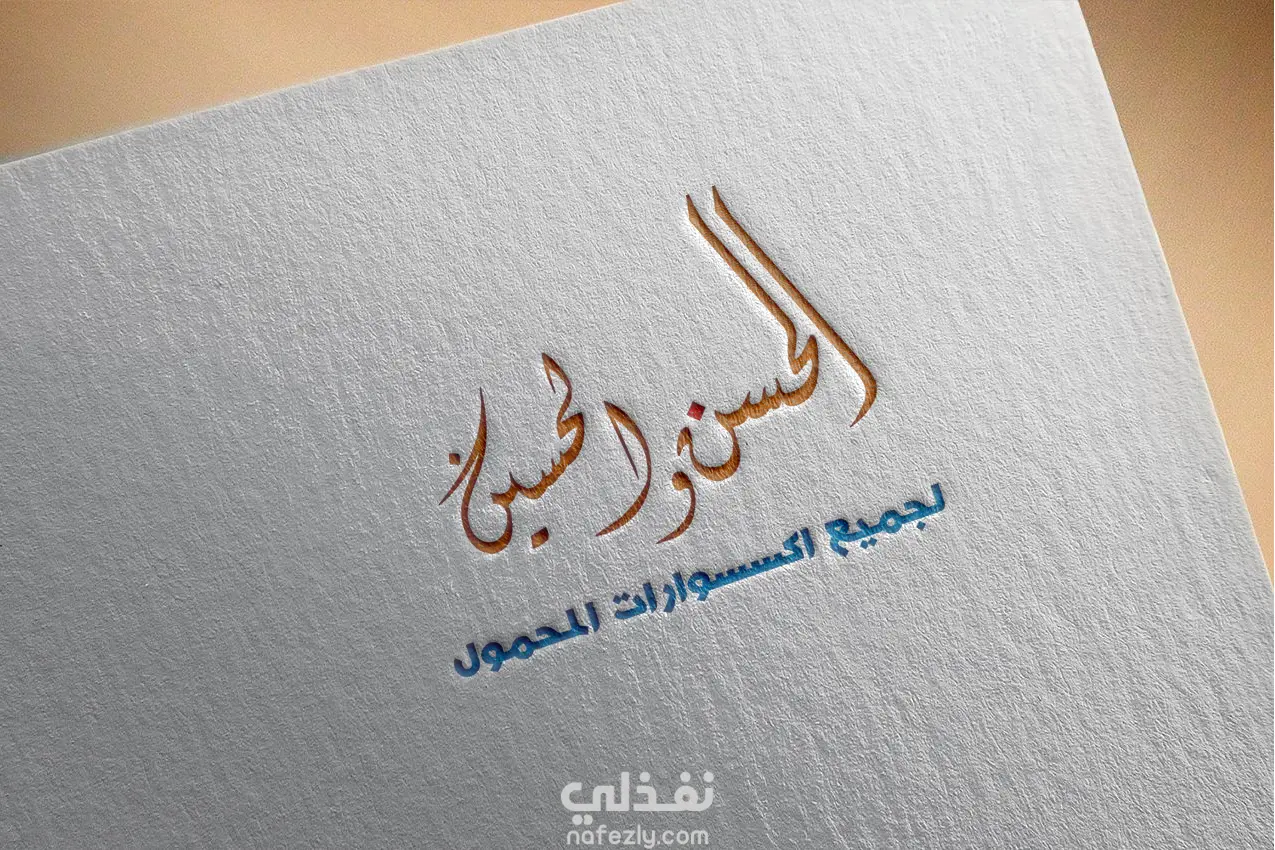 الحسن والحسين
لجميع اكسسوارات المحمول
نفذلي
nafezly.com